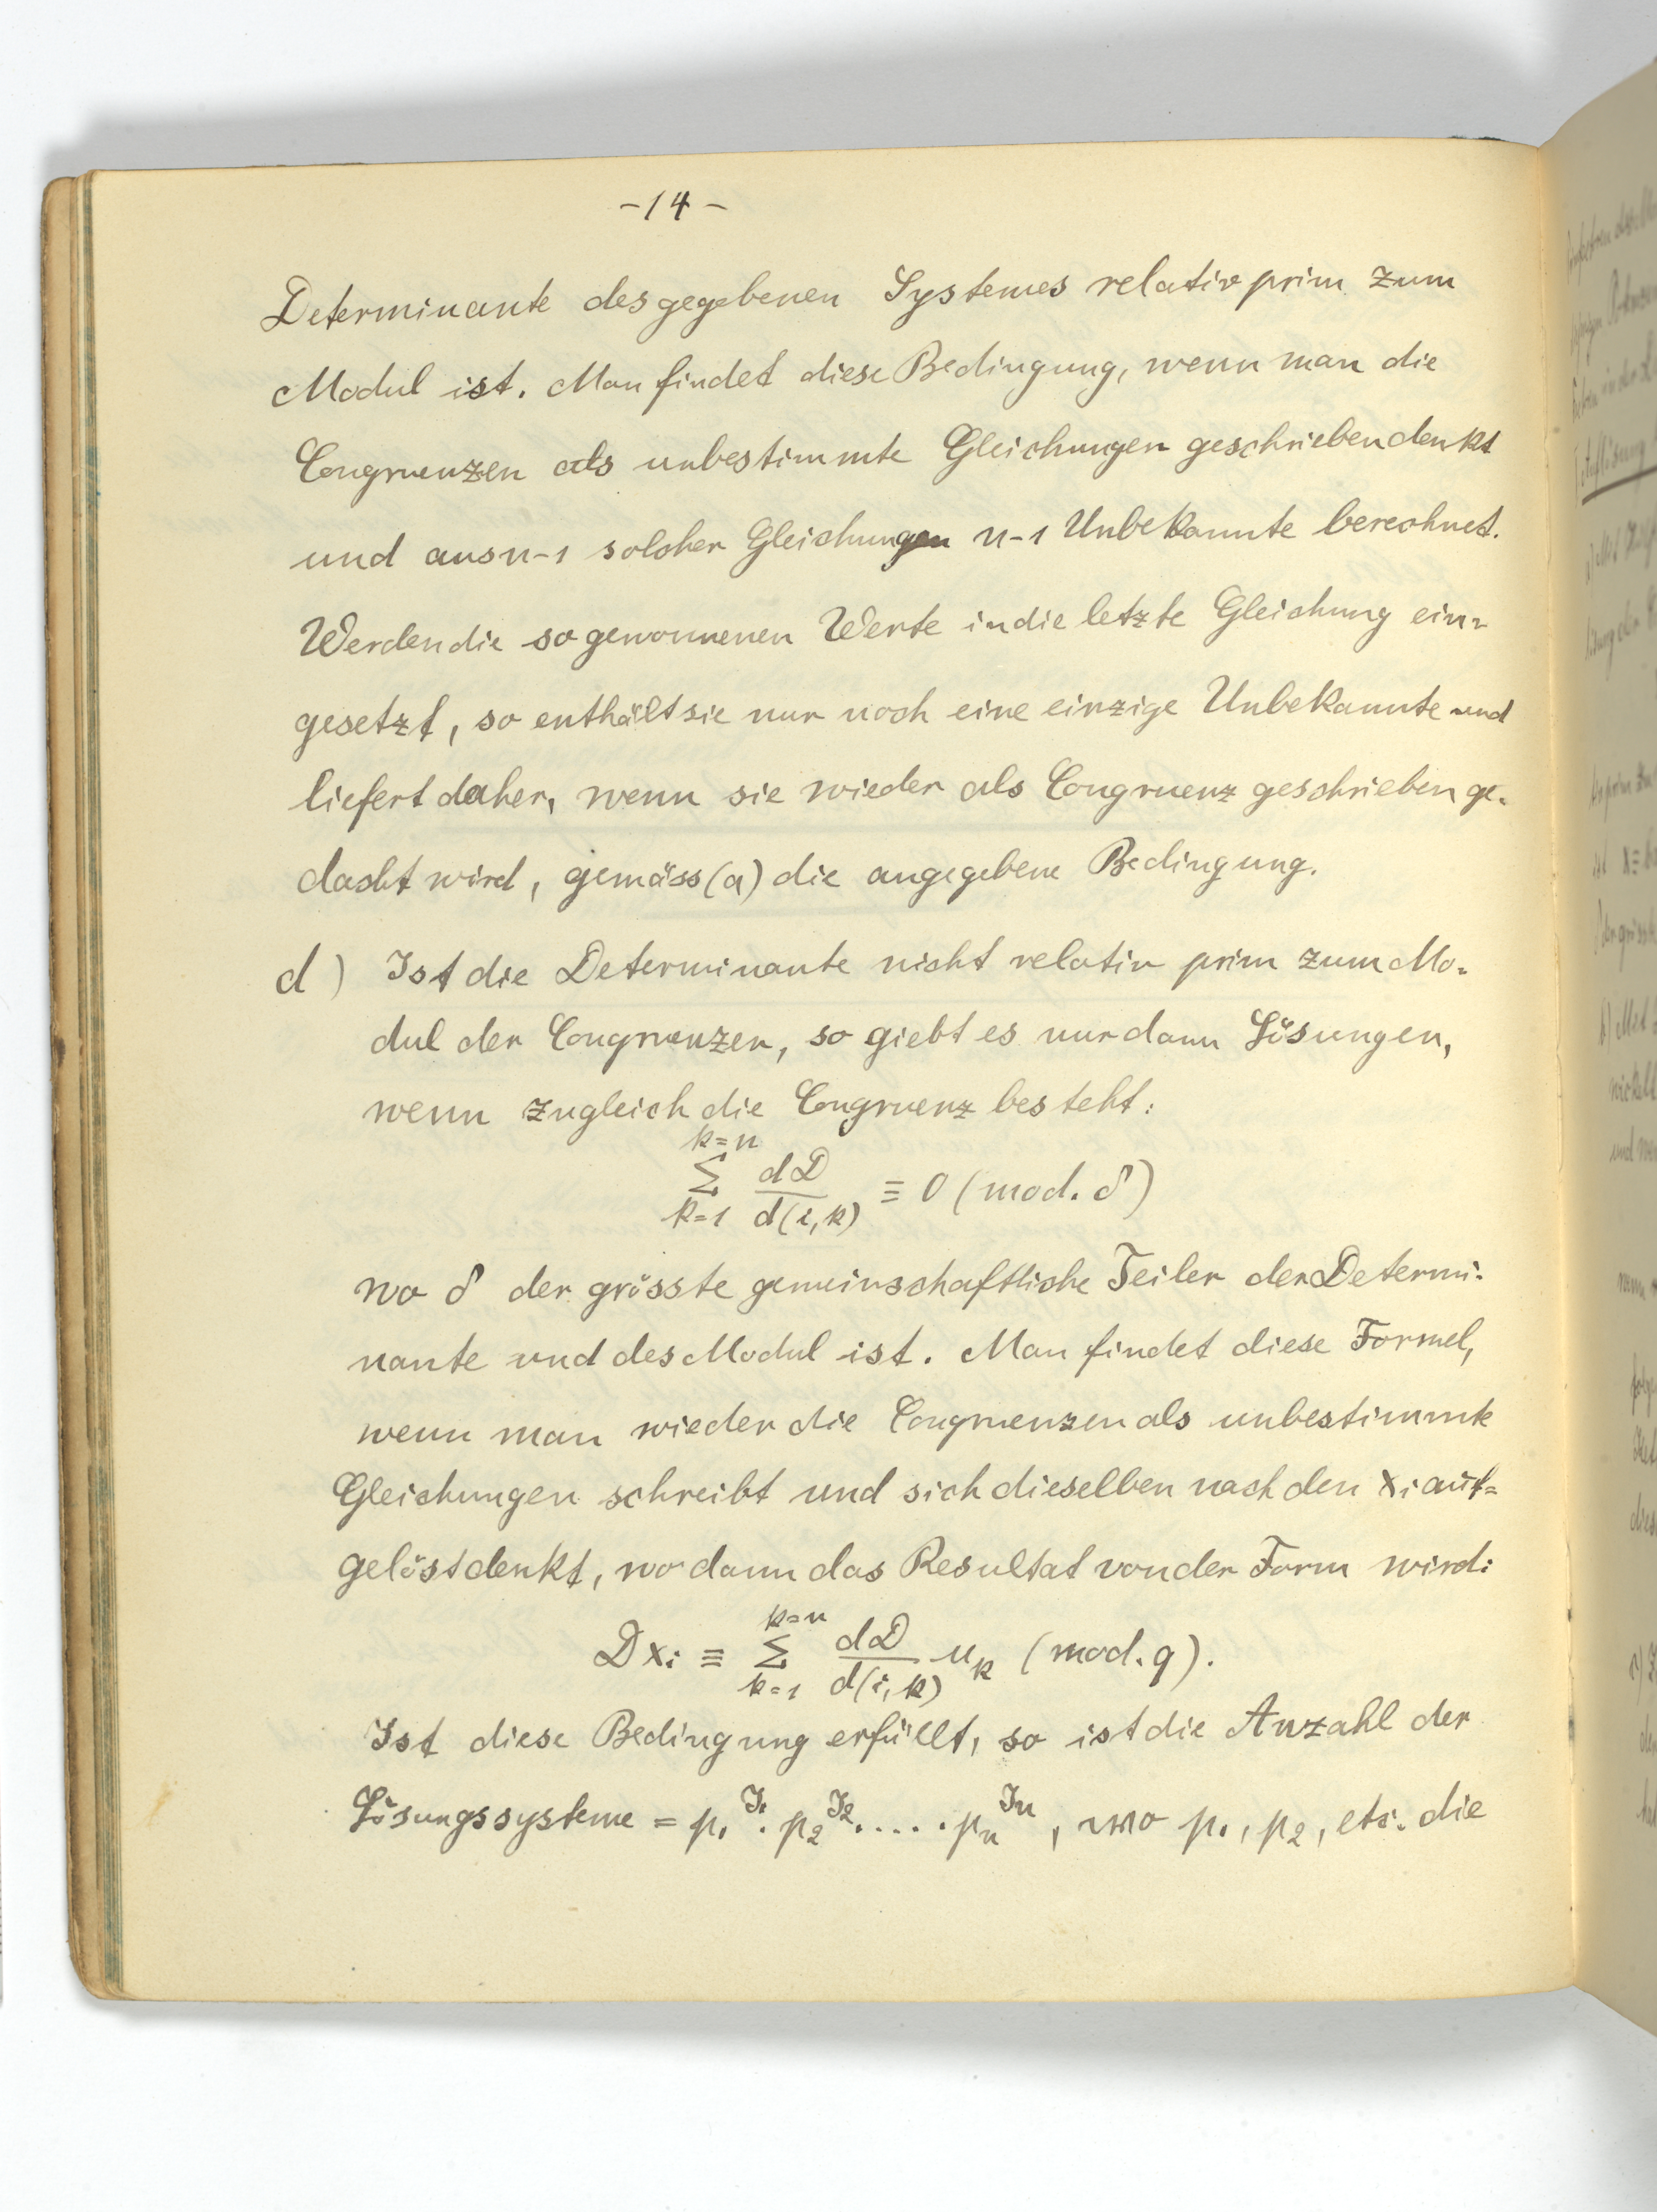 -14-
Determinante des gegebenen Systemes relativ prim zum
Modul ist. Man findet diese Bedingung, wenn man die
Congruenzen als unbestimmte Gleichungen geschrieben denkt
und aus n-1 solcher Gleichungen n-1 Unbekannte berechnet.
Werden die so gewonnenen Werte in die letzte Gleichung ein-
gesetzt, so enthält sie nur noch eine einzige Unbekannte und
liefert daher, wenn sie wieder als Congruenz geschrieben ge-
dacht wird, gemäss (a) die angegebene Bedingung.
d) Ist die Determinante nicht relativ prim zum Mo-
dul der Congruenzen, so giebt es nur dann Lösungen,
wenn zugleich die Congruenz besteht:
\sum_{k=1}^{k=n} \frac{dD}{d(i,k)} ≡ 0 (mod. δ)
wo δ der grösste gemeinschaftliche Teiler der Determi-
nante und des Modul ist. Man findet diese Formel,
wenn man wieder die Congruenzen als unbestimmte
Gleichungen schreibt und sich dieselben nach den x_i auf-
gelöst denkt, wo dann das Resultat von der Form wird:
Dx_i ≡ \sum_{k=1}^{k=n} \frac{dD}{d(i,k)} u_k (mod. q).
Ist diese Bedingung erfüllt, so ist die Anzahl der
Lösungssysteme = p_1^{J_1} . p_2^{J_2} . . . . . p_n^{J_n}, wo p_1, p_2, etc. die